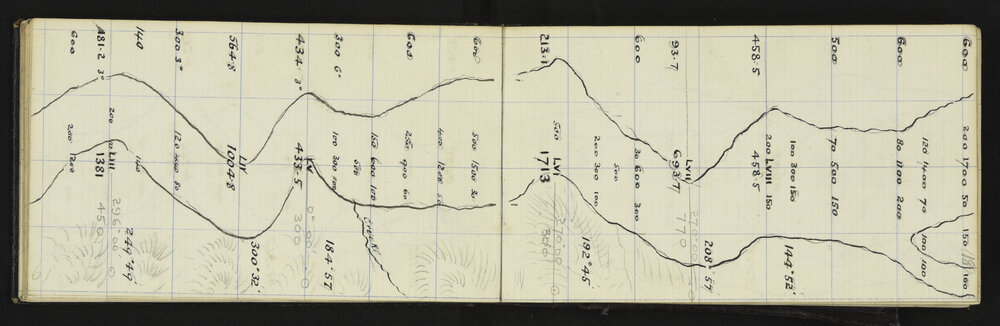 600 200 1700 50 150 100
120 1400 70 100 100
600 80 1100 200
500 70 500 150
100 300 150 144°52'
200 LVIII 150
458.5 458.5
208°57'
LVII 270°00'
93.7 693.7 770
600 30 600 300
500
200 300 100
192°45'
500 LVI 270°00'
213.1 1713 800
600 500 1500 30
400 1200 50
600 250 900 60
150 600 100
Creek
500
300 6° 100 300 184°57'
LV 0°00'
434. 3° 433.5 300
300°32'
LIV
564.8 1004.8
300 3° 120 400 80
140 140
249°49'
200 LIII 296°00'
481.2 3° 1381 450
600 200 200